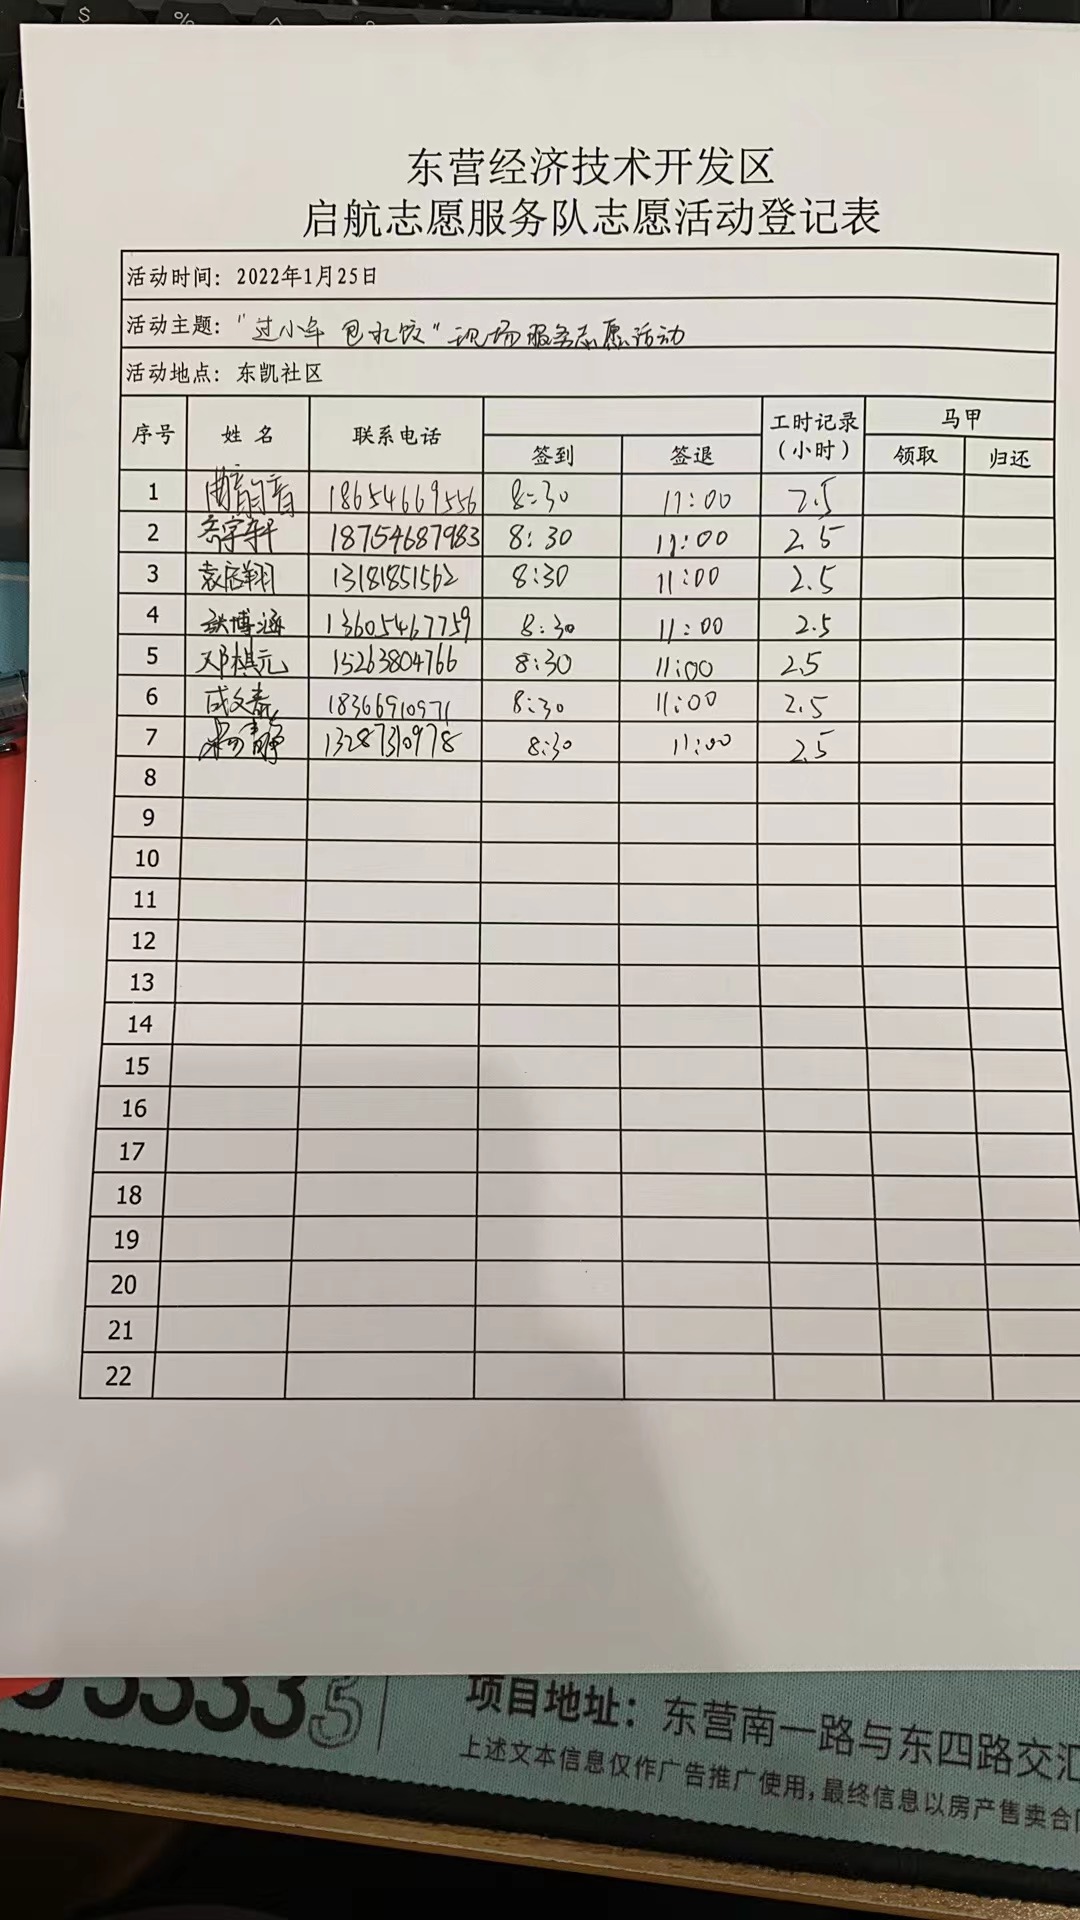 东营经济技术开发区
启航志愿服务队志愿活动登记表
活动时间：2022年1月25日
活动主题："过小年 包水饺"现场服务志愿活动
活动地点：东凯社区
序号 姓名 联系电话 签到 签退 工时记录（小时） 马甲 领取 归还
1 18654669556 8:30 11:00 2.5
2 齐宇轩 18754687983 8:30 11:00 2.5
3 袁启翔 13181851562 8:30 11:00 2.5
4 博涵 13605467759 8:30 11:00 2.5
5 邓棋元 15263804766 8:30 11:00 2.5
6 成文 18366910971 8:30 11:00 2.5
7 静 13287310978 8:30 11:00 2.5
8
9
10
11
12
13
14
15
16
17
18
19
20
21
22
项目地址：东营南一路与东四路交汇
上述文本信息仅作广告推广使用，最终信息以房产售卖合同